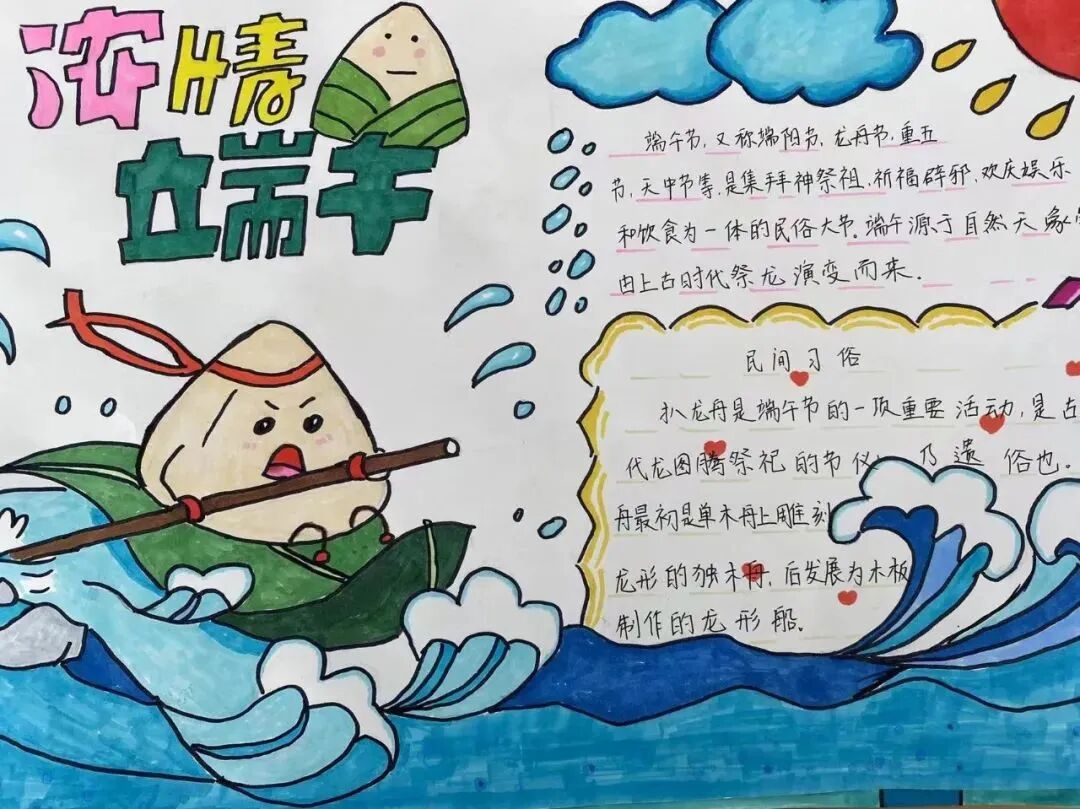 浓情
端午
端午节，又称端阳节，龙舟节，重五
节，天中节等，是集拜神祭祖，祈福辟邪，欢庆娱乐
和饮食为一体的民俗大节．端午源于自然天象
由上古时代祭龙演变而来．
民间习俗
扒龙舟是端午节的一项重要活动，是古
代龙图腾祭祀的节仪，乃遗俗也．
舟最初是单木舟上雕刻
龙形的独木舟，后发展为木板
制作的龙形船．